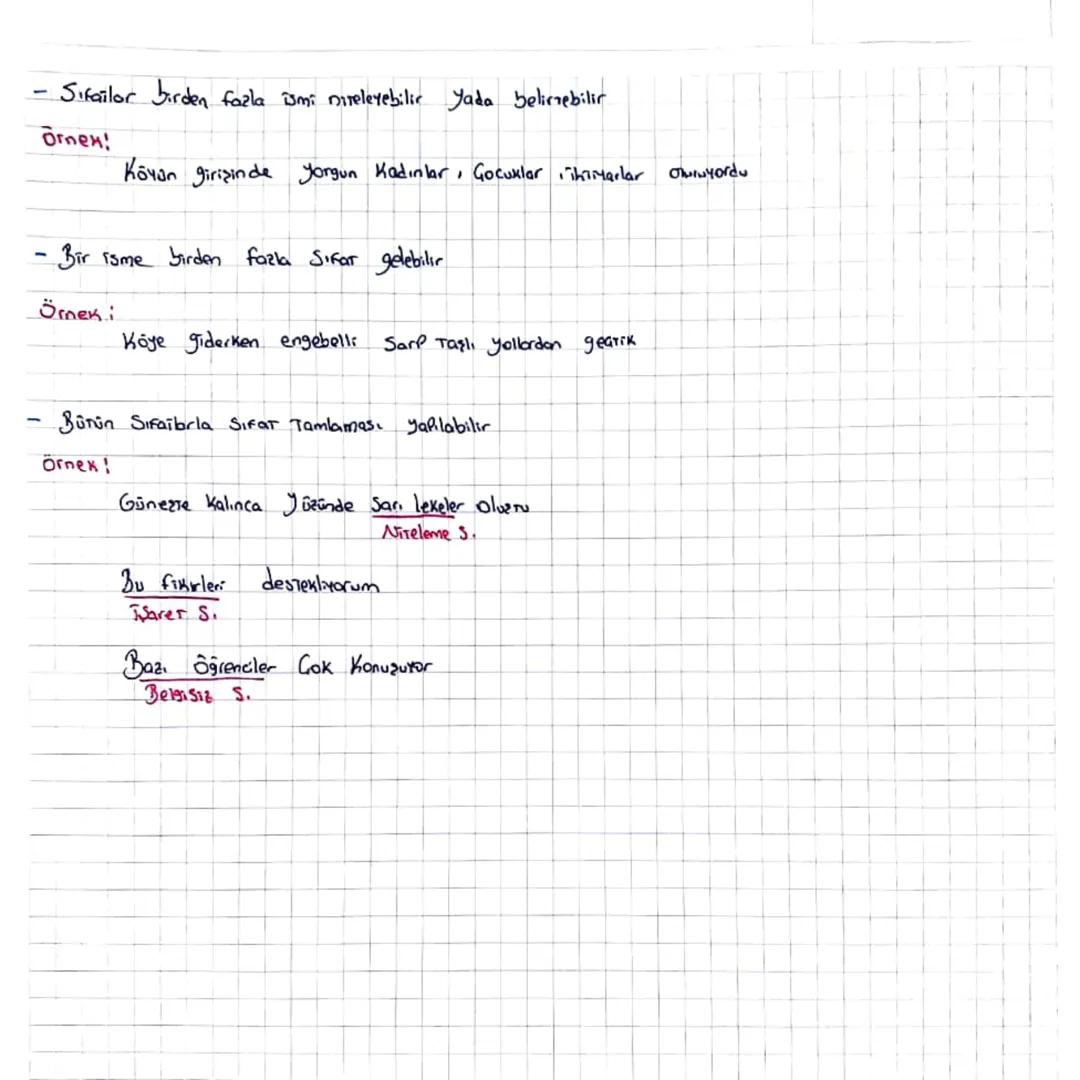 - Sıfatlar birden fazla ismi niteleyebilir yada belirtebilir
Örnek:
Köyün girişinde yorgun kadınlar, Çocuklar, ihtiyarlar oturuyordu
- Bir isme birden fazla sıfat gelebilir
Örnek:
Köye giderken engebelli sarp taşlı yollardan geçtik
- Bütün sıfatlarla sıfat tamlaması yapılabilir
Örnek:
Güneşte kalınca yüzünde sarı lekeler oluştu
Niteleme S.
Bu fikirleri destekliyorum
İşaret S.
Bazı öğrenciler Çok konuşuyor
Belgisiz S.